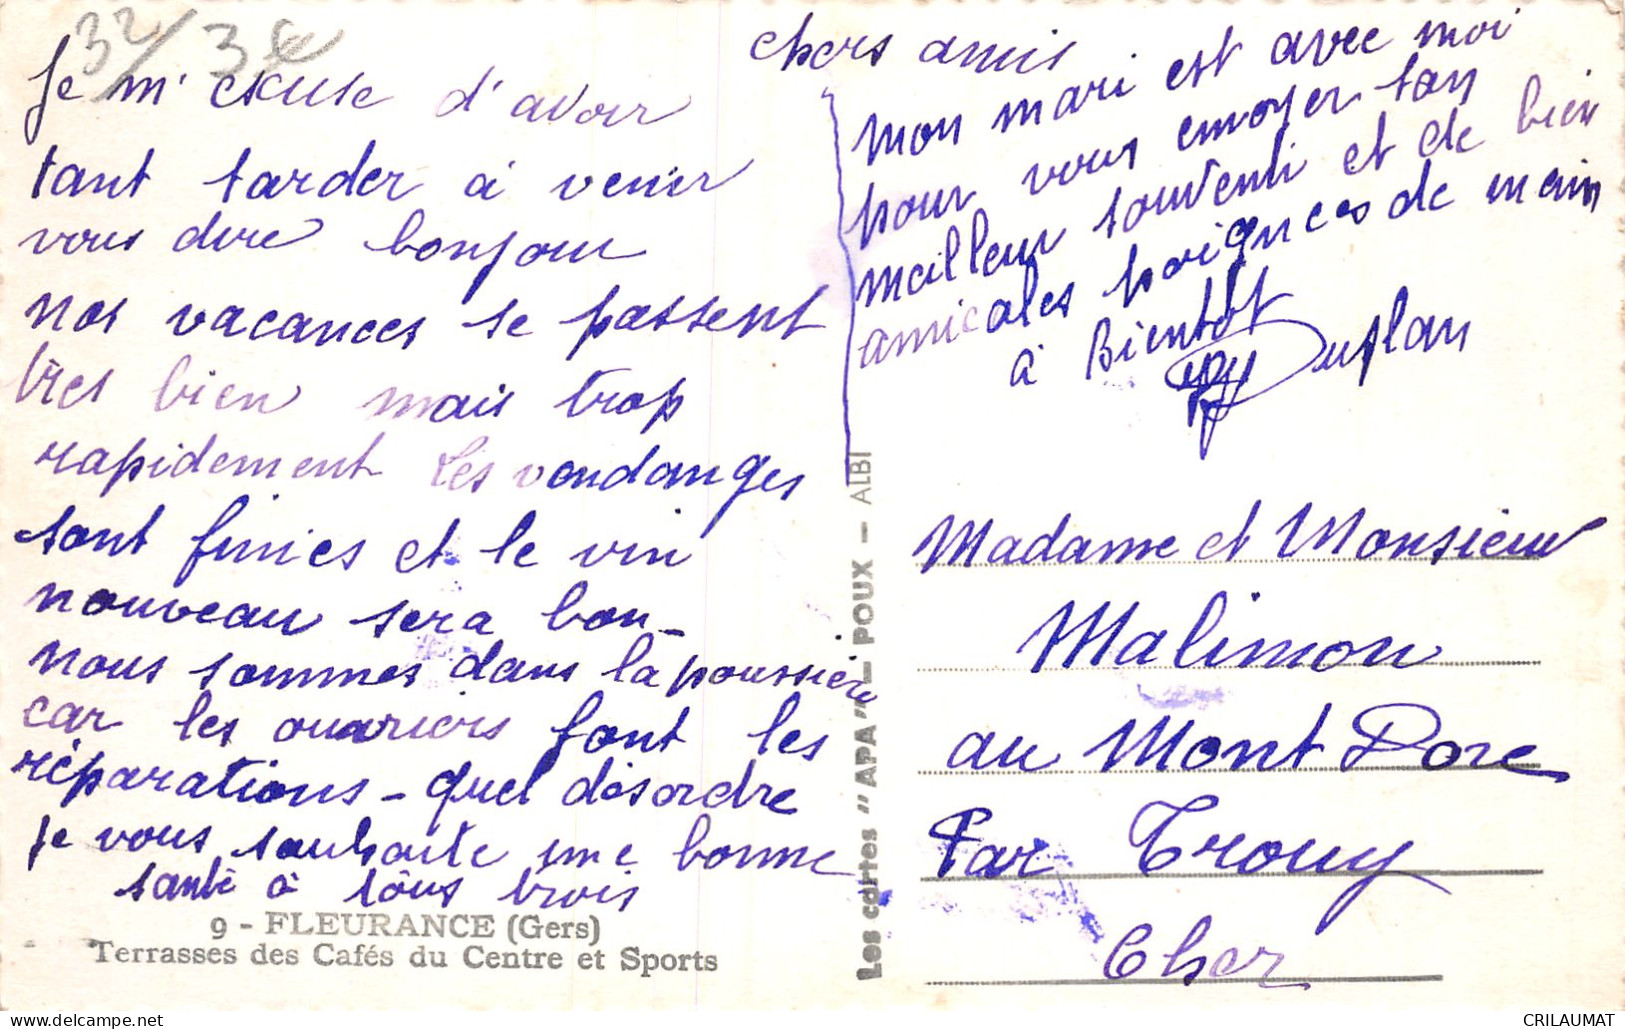 32/3€
chers amis
Je m'excuse d'avoir
tant tarder à venir
vous dire bonjour
nos vacances se passent
très bien mais trop
rapidement les vendanges
sont finies et le vin
nouveau sera bon_
nous sommes dans la poussière
car les ouvriers font les
réparations - quel désordre
je vous souhaite une bonne
santé à tous trois
mon mari est avec moi
pour vous envoyer son
meilleur souvenir et de bien
amicales poignées de main
à Bientôt
Duplan
Madame et Monsieur
Malimon
au Mont Dore
Par Trouy
Cher
Les cartes "APA" — POUX — ALBI
9 - FLEURANCE (Gers)
Terrasses des Cafés du Centre et Sports
www.delcampe.net
CRILAUMAT